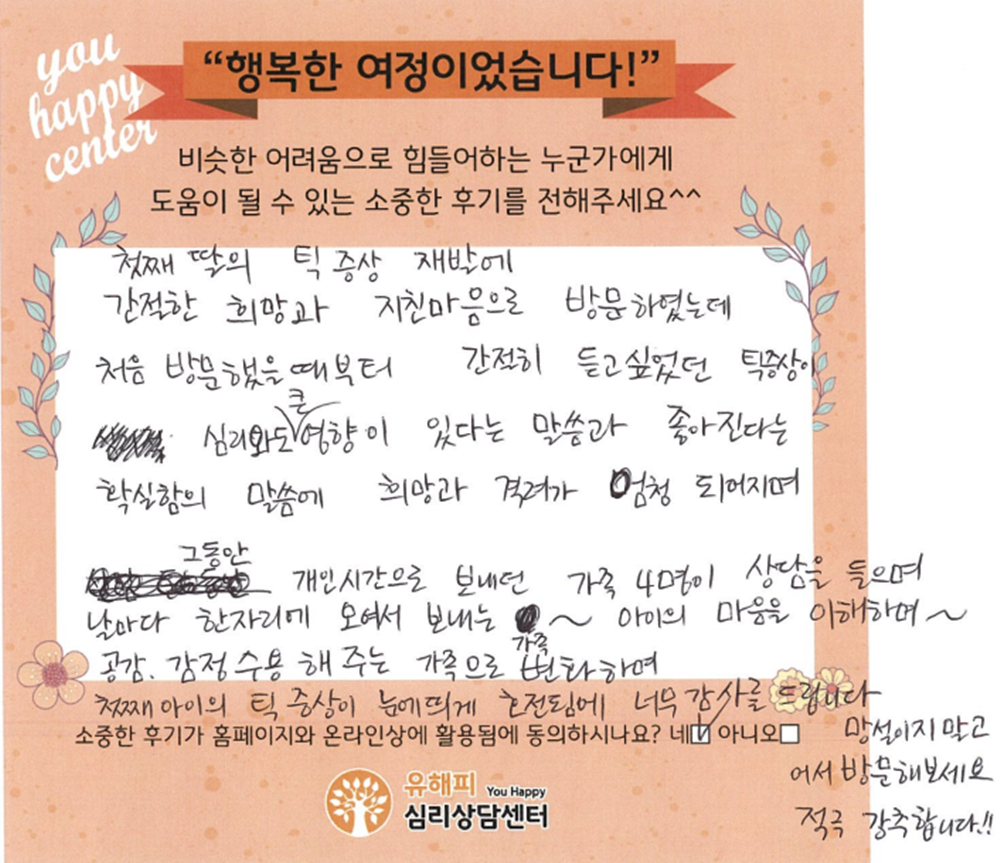 you
happy
center
“행복한 여정이었습니다!”
비슷한 어려움으로 힘들어하는 누군가에게
도움이 될 수 있는 소중한 후기를 전해주세요^^
첫째 딸의 틱 증상 재발에
간적한 희망과 지친마음으로 방문하였는데
처음 방문했을때부터 간적히 듣고싶었던 틱증상이
심리와도 큰 영향이 있다는 말씀과 좋아진다는
확실함의 말씀에 희망과 격려가 엄청 되어지며
그동안 개인시간으로 보내던 가족 4명이 상담을 들으며
날마다 한자리에 모여서 보내는 ~ 아이의 마음을 이해하며~
공감. 감정수용 해 주는 가족으로 가족 변화하며
첫째아이의 틱 증상이 눈에띄게 호전됨에 너무 감사를 드립니다
소중한 후기가 홈페이지와 온라인상에 활용됨에 동의하시나요? 네☑ 아니오□
망설이지말고
어서 방문해보세요
적극 강추합니다.!!
유해피 You Happy
심리상담센터